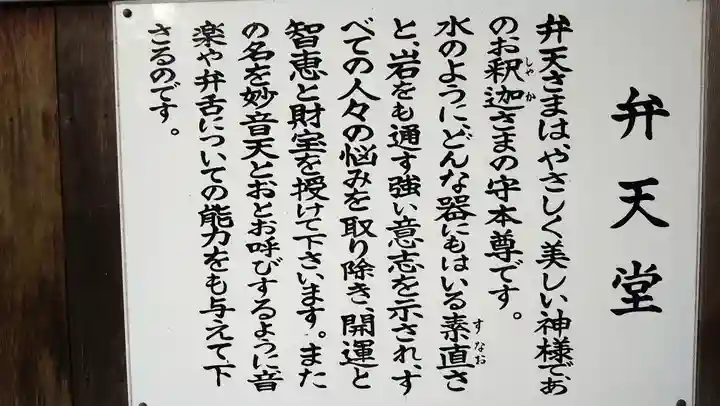 弁天堂
弁天さまは、やさしく美しい神様であ
のお釈迦さまの守本尊です。
水のように、どんな器にもはいる素直さ
と、岩をも通す強い意志を示され、す
べての人々の悩みを取り除き、開運と
智恵と財宝を授けて下さいます。また
の名を妙音天とおとお呼びするように音
楽や弁舌についての能力をも与えて下
さるのです。